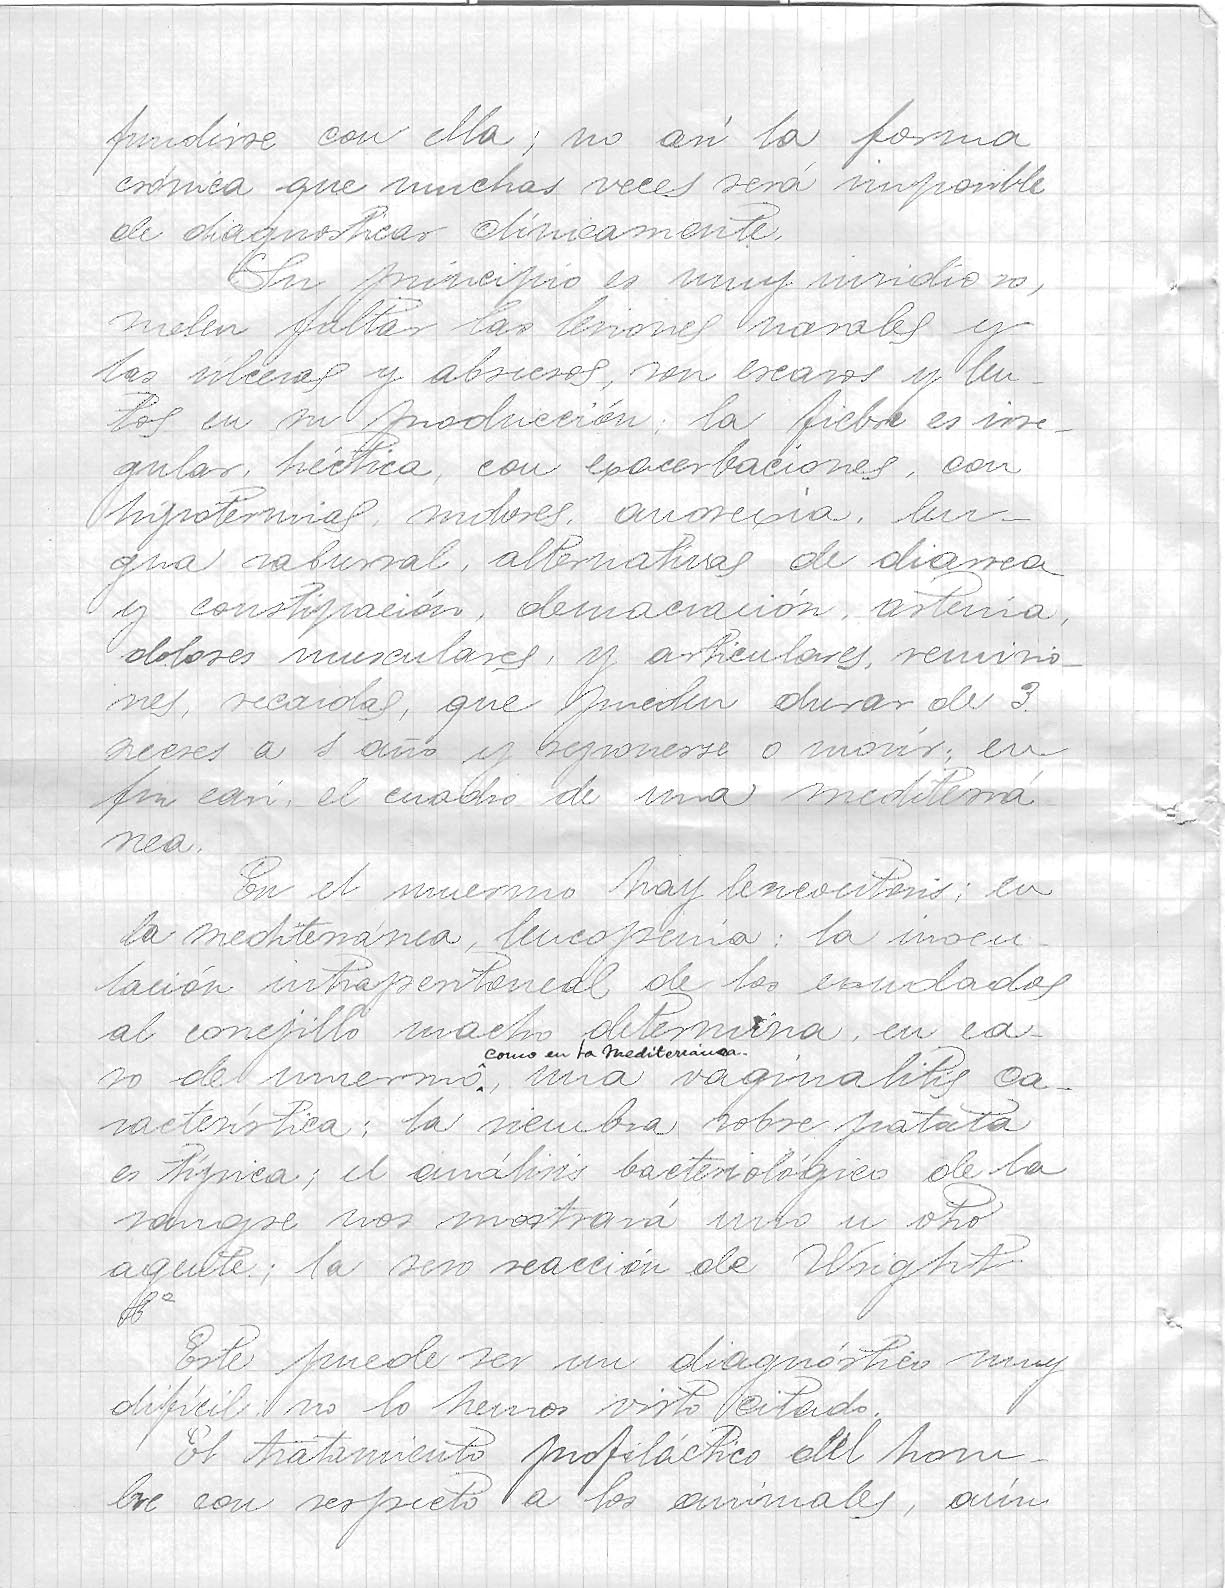 fundirse con ella; no así la forma
crónica que muchas veces será imposible
de diagnosticar clínicamente.
Su principio es muy insidioso,
suelen faltar las lesiones nasales y
las úlceras y abscesos, son escasos y len-
tos en su producción; la fiebre es irre-
gular, héctica, con exacerbaciones, con
hipotermias, sudores, anorexia, len-
gua saburral, alternativas de diarrea
y constipación, demacración, astenia,
dolores musculares, y articulares, remisio-
nes, recaidas, que pueden durar de 3
meses a 1 año y reponerse o morir; en
fin casi, el cuadro de una mediterrá
nea.
En el muermo hay leucocitosis; en
la mediterránea, leucopenia: la inocu-
lación intraperitoneal de los exudados
al conejillo macho determina, en ca-
como en la Mediterránea.
so de muermo, una vaginalitis ca-
racterística; la siembra sobre patata
es típica; el análisis bacteriológico de la
sangre nos mostrará uno u otro
agente; la sero reacción de Wright
Este puede ser un diagnóstico muy
difícil, no lo hemos visto citado.
El tratamiento profiláctico del hom-
bre con respecto a los animales, aún